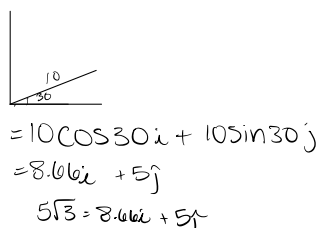 10
30
=10cos30i + 10sin30j
=8.66i + 5j
5√3 = 8.66i + 5j